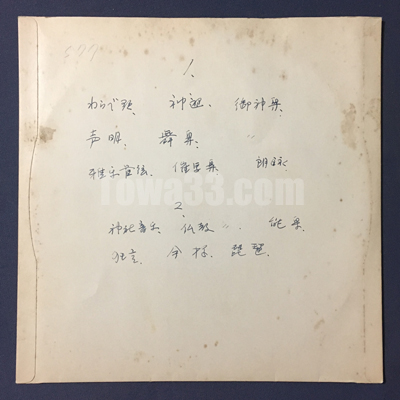 577
1.
わらべ歌、 神遊、 御神楽、
声明、 舞楽、
雅楽管弦、 催馬楽 朗詠
Towa33.com
2.
神祀音楽 仏教 〃 、 能楽
狂言、 琵琶、